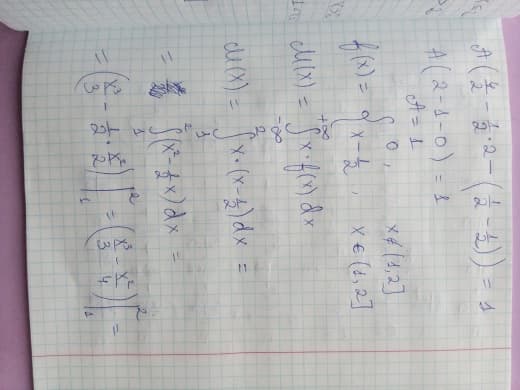 A(4/2 - 1/2·2 - (1/2 - 1/2)) = 1
A(2 - 1 - 0) = 1
A = 1
f(x) = { 0, x ∉ (1,2]
x - 1/2, x ∈ (1,2]
M(x) = ∫_{-∞}^{+∞} x·f(x)dx
M(x) = ∫_1^2 x·(x - 1/2)dx =
= ∫_1^2 (x² - 1/2x)dx =
= (x³/3 - 1/2·x²/2)|_1^2 = (x³/3 - x²/4)|_1^2 =